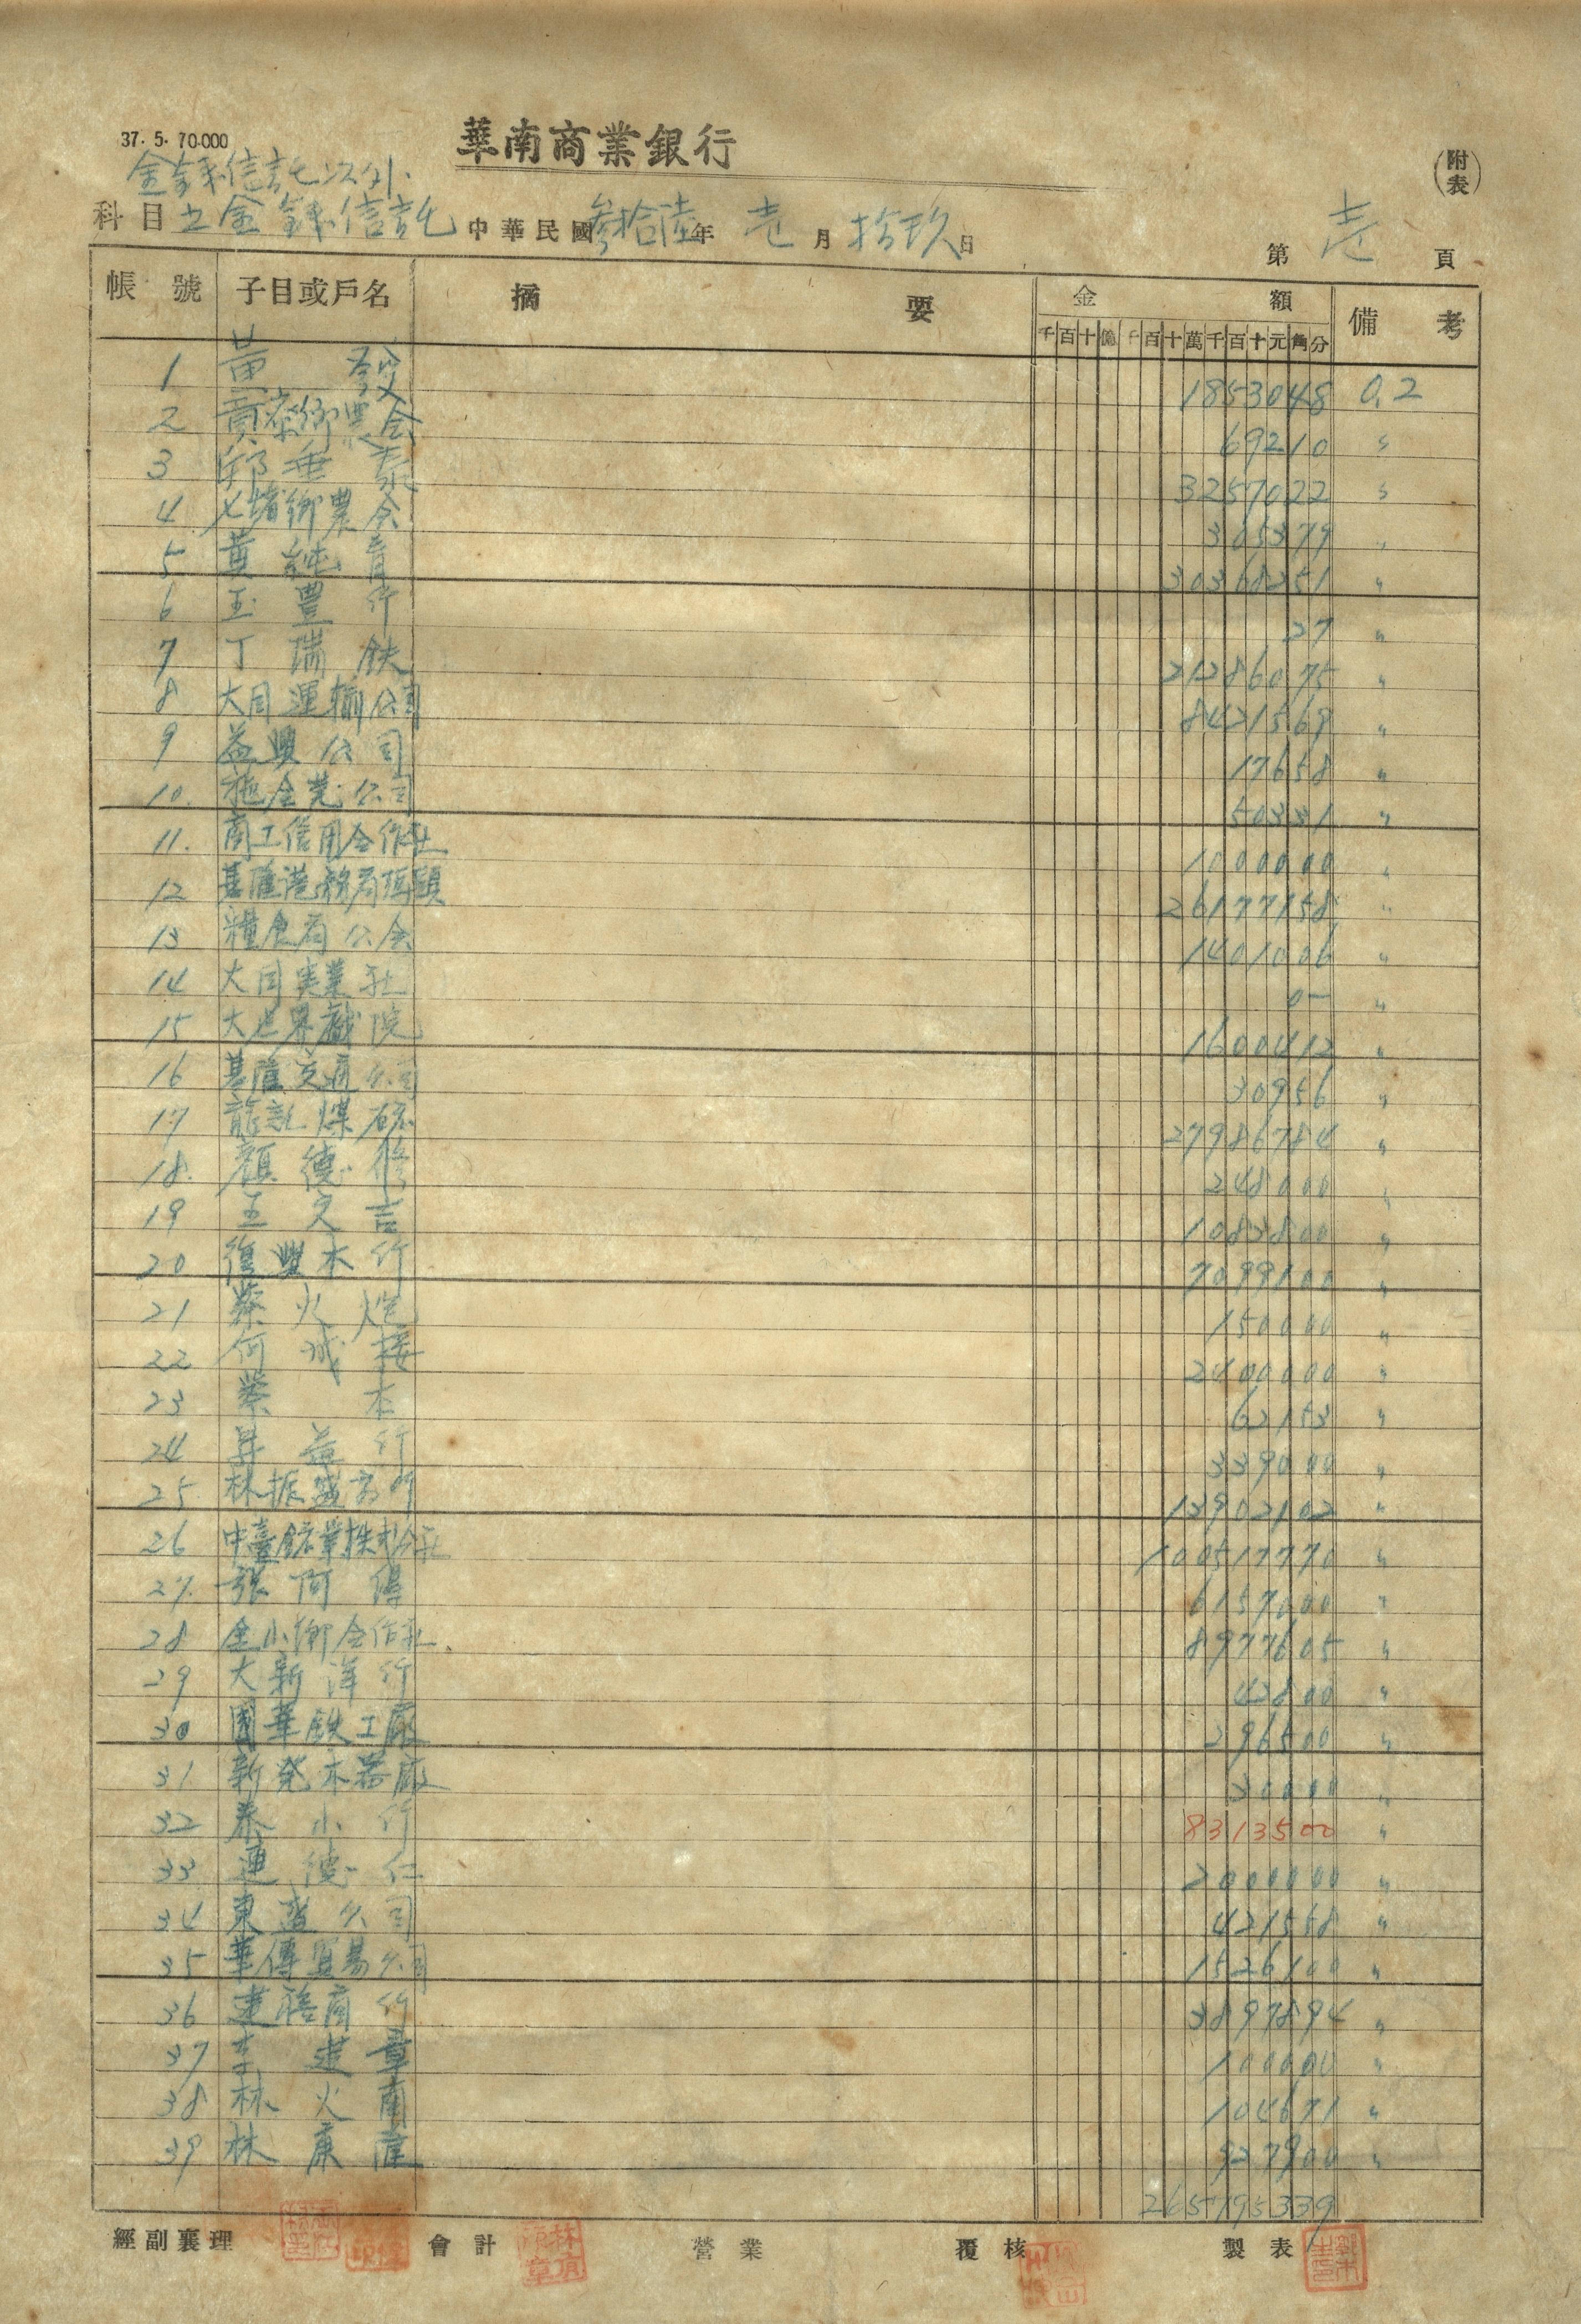 37. 5. 70.000
華南商業銀行
(附表)
金錢信託以外
科目 之金錢信託 中華民國參拾陸年 壱 月 拾玖 日 第 壱 頁
帳號 子目或戶名 摘要 金額 備考
千百十億千百十萬千百十元角分
1 黃 發 1853048 0.2
2 貢寮鄉農会 69210 〃
3 邱垂泰 3257022 〃
4 七堵鄉農会 305379 〃
5 黃純青 30368251 〃
6 玉豊行 27 〃
7 丁瑞鉄 21286075 〃
8 大同運輸公司 8421569 〃
9 益興公司 17658 〃
10. 公司 50331 〃
11. 商工信用合作社 1000000 〃
12 基隆港務局 26177158 〃
13 糧食局公会 1401006 〃
14 大同実業社 0- 〃
15 大世界戲院 1600412 〃
16 基隆交通公司 30956 〃
17 龍記煤砿 27986784 〃
18. 顏德修 248000 〃
19 王文吉 1083800 〃
20 復豐木行 7099100 〃
21 蔡火炮 150000 〃
22 何城接 2400000 〃
23 蔡 本 62153 〃
24 昇益行 339000 〃
25. 林振盛商行 13902102 〃
26 中臺鉱業株式会社 100517770 〃
27. 張阿得 6157000 〃
28 金山鄉合作社 8977605 〃
29 大新洋行 42800 〃
30 國華鉄工廠 296500 〃
31 新発木器廠 30000 〃
32 泰山行 8313500 〃
33 連德仁 2000000 〃
34 東益公司 421558 〃
35 華傳貿易公司 1526100 〃
36 建隆商行 3897894 〃
37 李建章 100000 〃
38 林火南 104671 〃
39 林康隆 927900 〃
265195339
經副襄理 會計 營業 覆核 製表